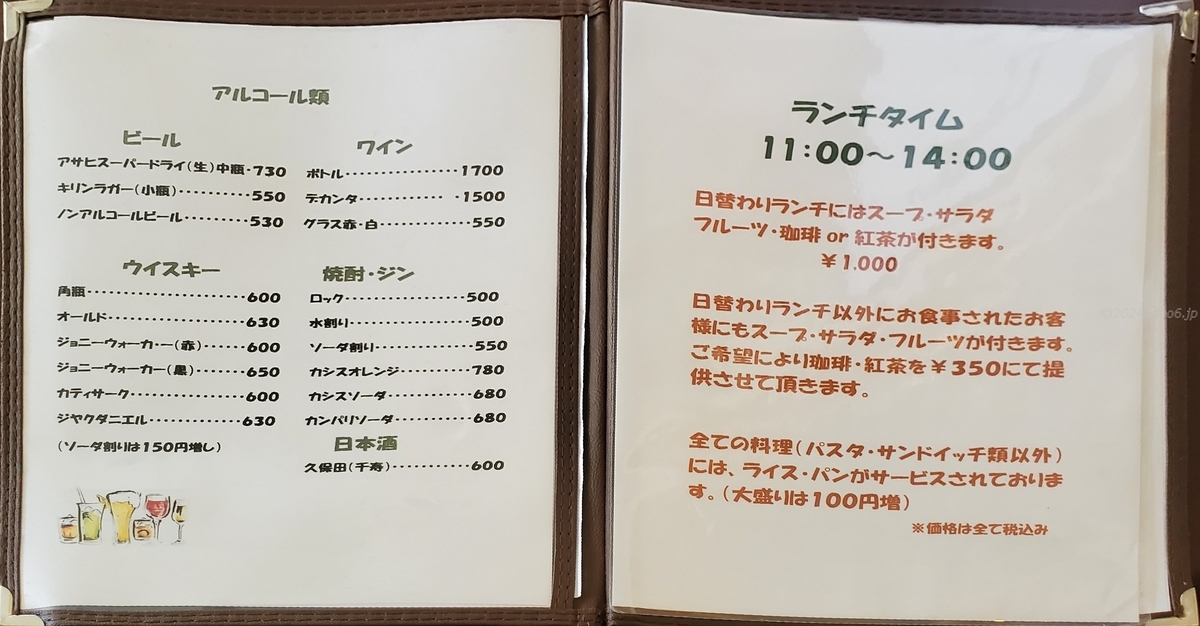 アルコール類
ビール
アサヒスーパードライ(生)中瓶・730
キリンラガー(小瓶)・・・・・・・・・・550
ノンアルコールビール・・・・・・・・・530
ワイン
ボトル・・・・・・・・・・・・・・・1700
デカンタ・・・・・・・・・・・ ・1500
グラス赤・白・・・・・・・・・・・・550
ウイスキー
角瓶・・・・・・・・・・・・・・・・・・・・・600
オールド・・・・・・・・・・・・・・・・・・630
ジョニーウォーカ・ー(赤)・・・・・・600
ジョニーウォーカー(黒)・・・・・・・650
カティサーク・・・・・・・・・・・・・・・600
ジヤクダニエル・・・・・・・・・・・・・630
(ソーダ割りは150円増し)
焼酎・ジン
ロック・・・・・・・・・・・・・・・・500
水割り・・・・・・・・・・・・・・・・500
ソーダ割り・・・・・・・・・・・・・550
カシスオレンジ・・・・・・・・・・780
カシスソーダ・・・・・・・・・・・・680
カンパリソーダ・・・・・・・・・・・680
日本酒
久保田(千寿)・・・・・・・・・・・600
ランチタイム
11:00～14:00
日替わりランチにはスープ・サラダ
フルーツ・珈琲 or 紅茶が付きます。
￥1,000
日替わりランチ以外にお食事されたお客
様にもスープ・サラダ・フルーツが付きます。
ご希望により珈琲・紅茶を￥350にて提
供させて頂きます。
全ての料理(パスタ・サンドイッチ類以外)
には、ライス・パンがサービスされておりま
す。(大盛りは100円増)
※価格は全て税込み